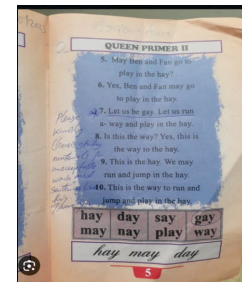 QUEEN PRIMER II
5. May Ben and Fan go to
play in the hay?
6. Yes, Ben and Fan may go
to play in the hay.
7. Let us be gay. Let us run
a- way and play in the hay.
8. Is this the way? Yes, this is
the way to the hay.
9. This is the hay. We may
run and jump in the hay.
10. This is the way to run and
jump and play in the hay.
hay day say gay
may nay play way
hay may day
5
Please
kindly